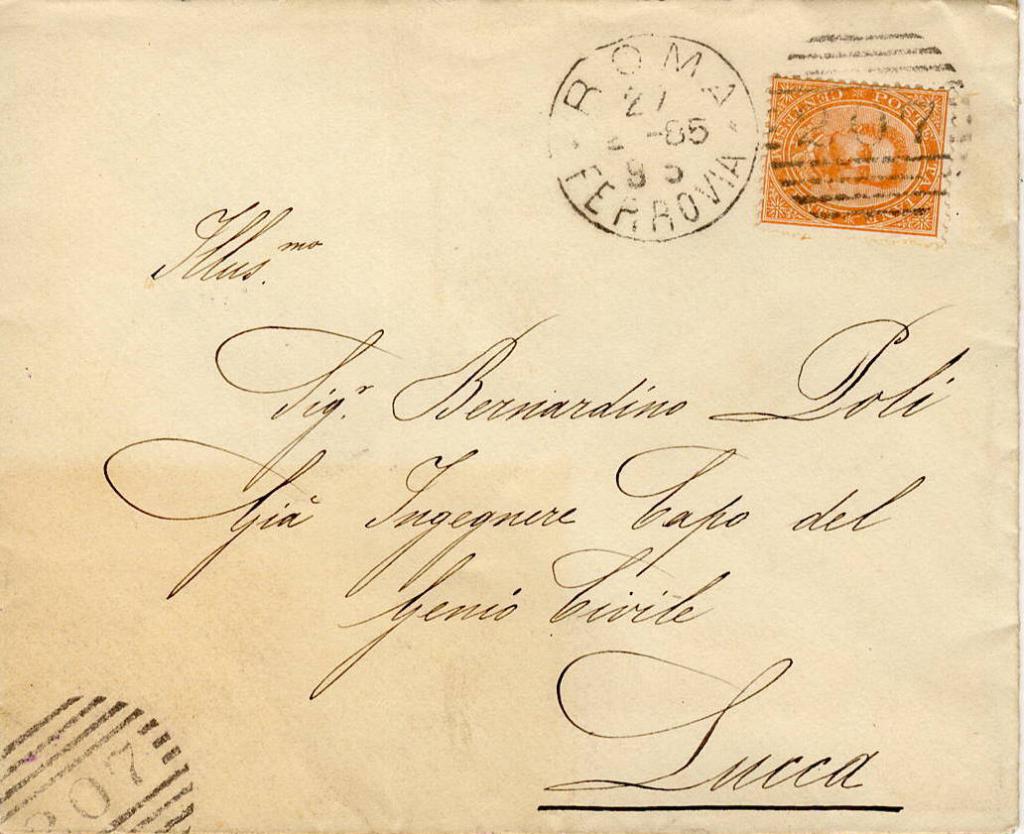 ROMA
27
-85
9 S
FERROVIA
Illus.mo
Sigr. Bernardino Poli
Già Ingegnere Capo del
Genio Civile
Lucca
207